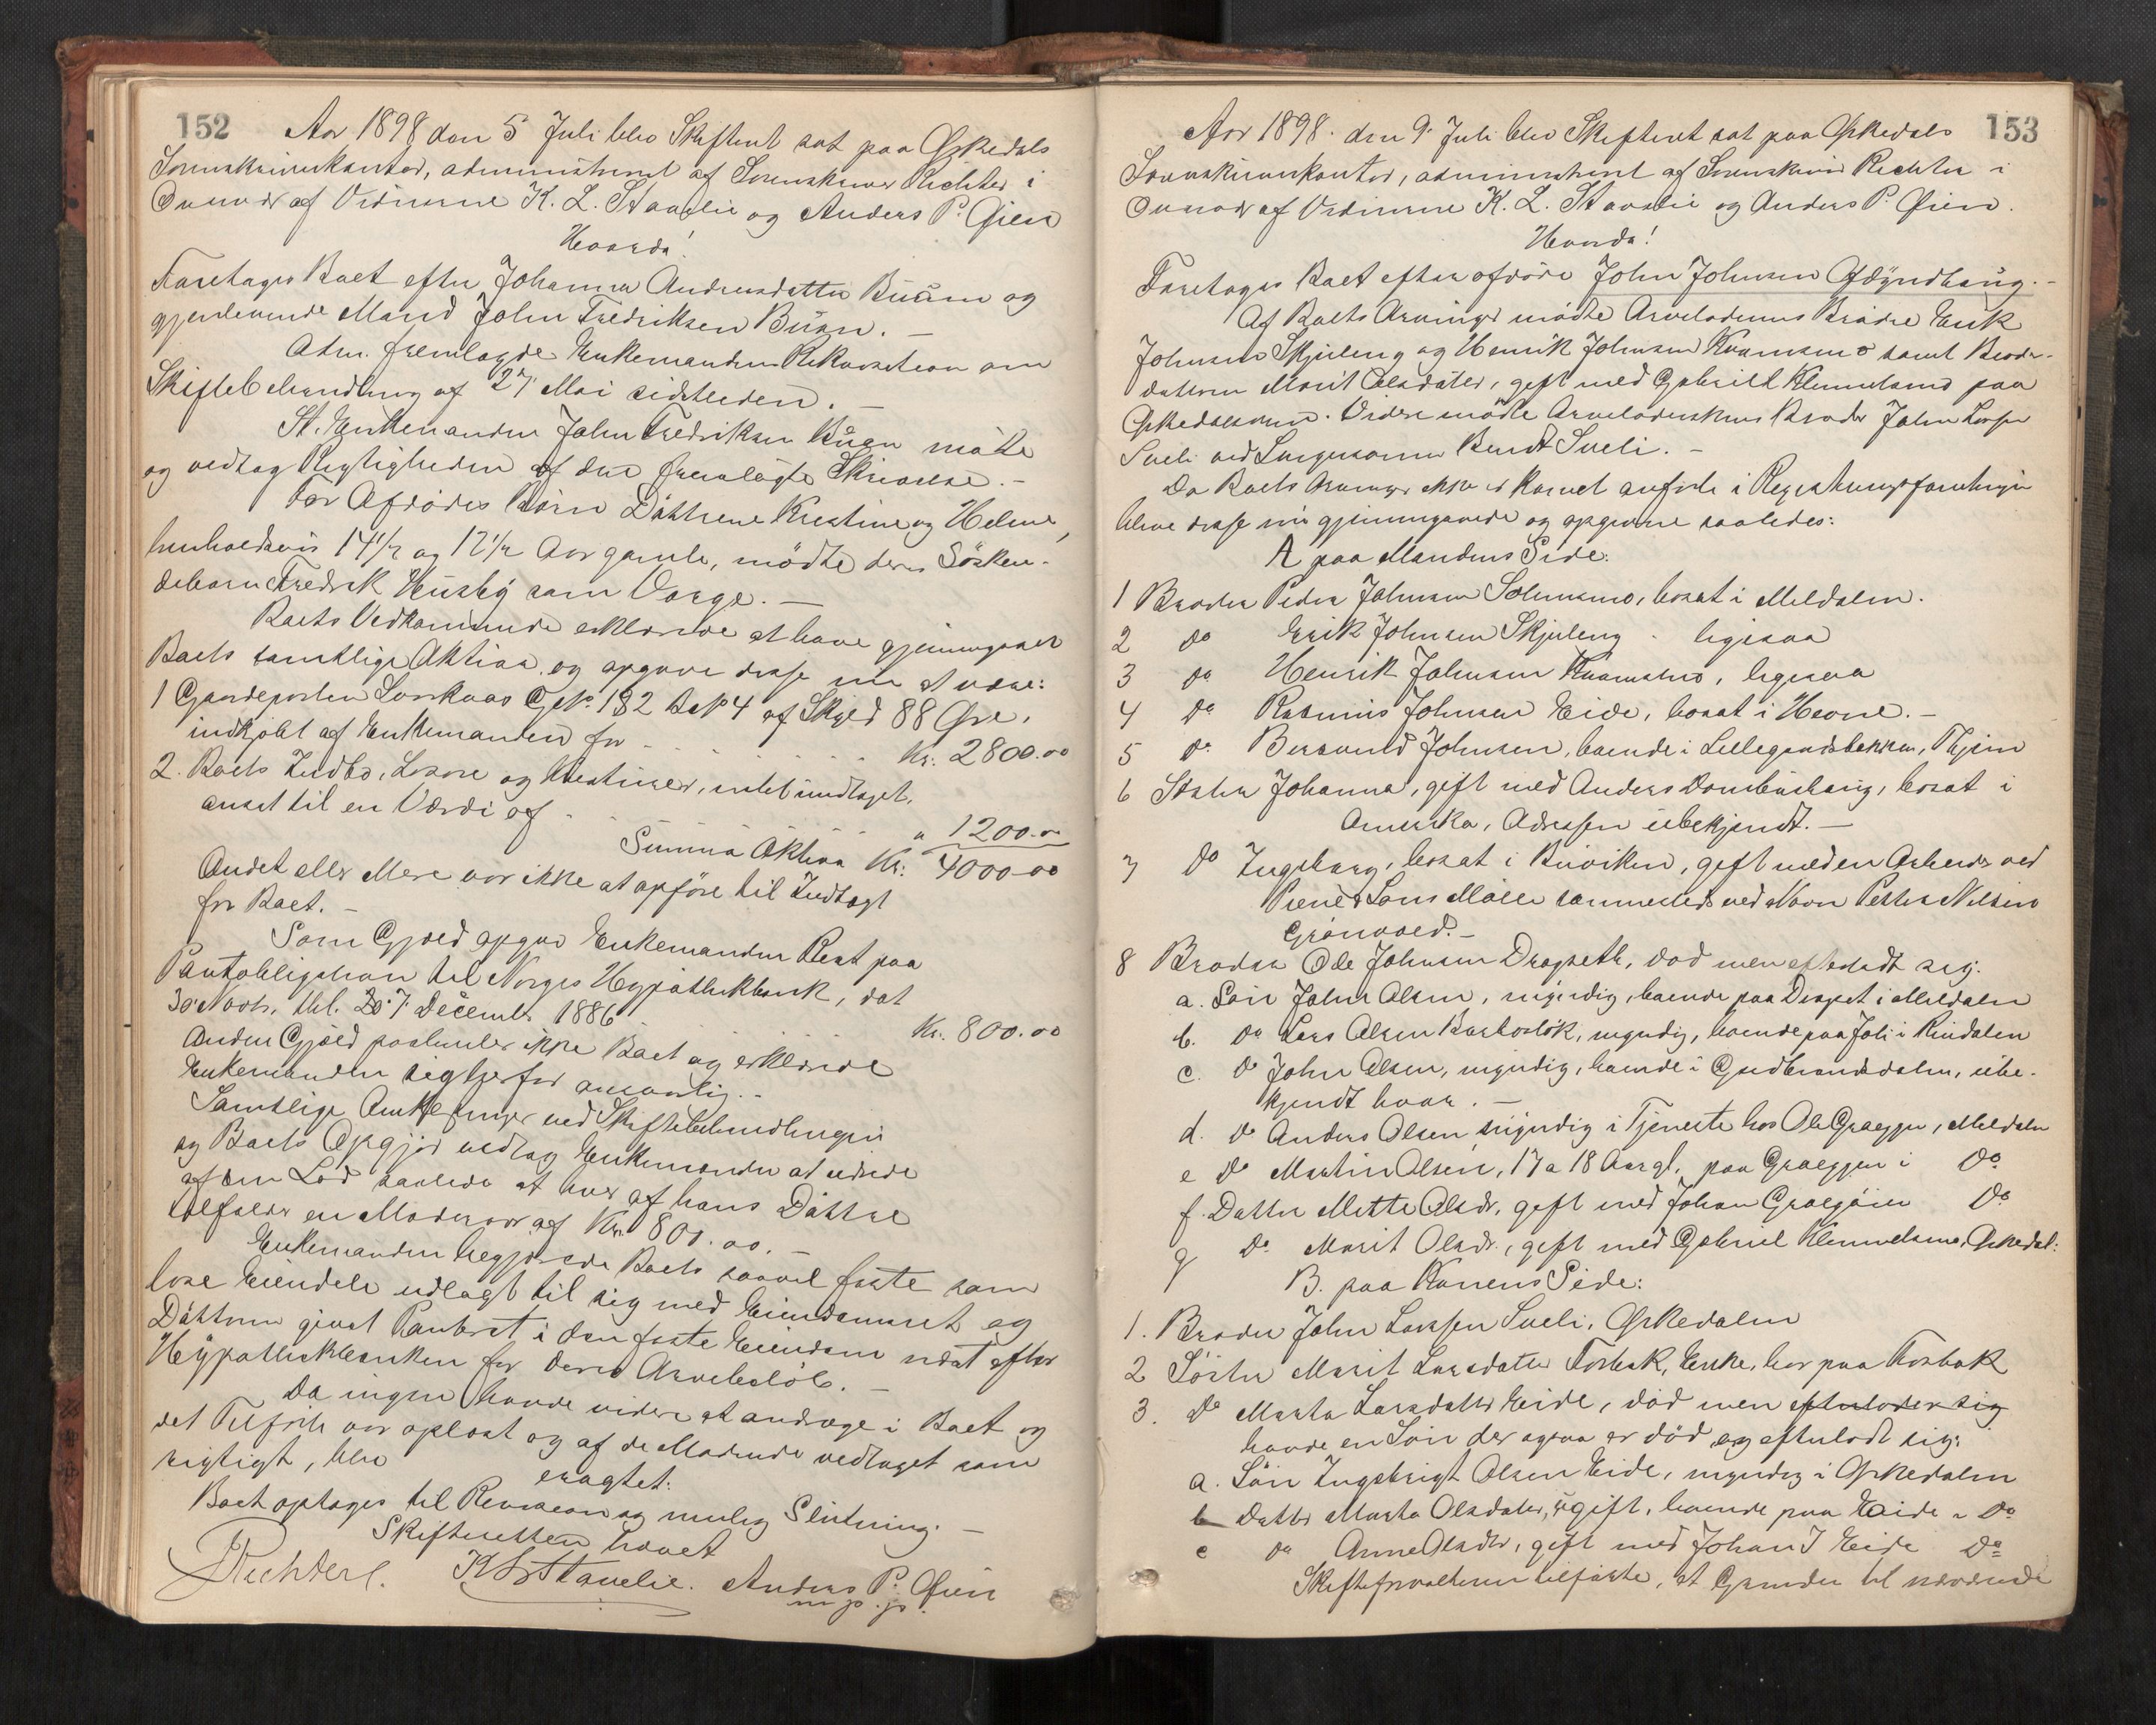 152
Aar 1898 den 5 Juli blev Skifteret sat paa Orkedals
Sorenskriverkontor, administreret af Sorenskriver Richter i
Overvær af Vidnerne K. L. Stavelie og Anders P. Øien
Hvorda!
Foretages Boet efter Johanna Andersdatter Buan og
gjenlevende Mand John Fredriksen Buan. —
Adm. fremlagde Enkemandens Rekvisition om
Skiftebehandling af 27 Mai sidstleden. —
St. Enkemanden John Fredriksen Buan mødte
og vedtog Rigtigheden af den fremlagte Skrivelse. —
For Afdødes Børn Døttrene Kristine og Heline,
henholdsvis 14½ og 12½ Aar gamle, mødte deres Søsken-
debarn Fredrik Husby som Værge. —
Boets Vedkommende erklærede at have gjennemgaaet
Boets samtlige Aktiva og opgave disse nu at være:
1 Gaardeparten Loskaas G.No 132 B.No 4 af Skyld 88 Øre,
indkjøbt af Enkemanden for Kr. 2800.00
2. Boets Indbo, Løsøre og Kreaturer, intet undtaget,
anset til en Værdi af " 1200.00
Summa Aktiva Kr. 4000.00
Andet eller Mere var ikke at opføre til Indtægt
for Boet. —
Som Gjæld opgav Enkemanden Rest paa
Pantobligation til Norges Hypothekbank, dat
30 Novbr, thl. 7 Decembr 1886 Kr. 800.00
Anden Gjæld paahviler ikke Boet og erklærede
Enkemanden sig herfor ansvarlig. —
Samtlige Omkostninger ved Skiftebehandlingen
og Boets Opgjør vedtog Enkemanden at udrede
af sin Lod saaledes at hver af hans Døttre
tilfalder en Mødrearv af Kr. 800.00. —
Enkemanden begjærede Boets saavel faste som
løse Eiendele udlagt til sig med Eiendomsret og
Døttrene givet Panteret i den faste Eiendom næst efter
Hypothekbanken for deres Arvebeløb. —
Da ingen havde videre at andrage i Boet og
det Tilførte var oplæst og af de Mødende vedtaget som
rigtigt, blev
eragtet:
Boet optages til Revision og mulig Slutning. —
Skifteretten hævet
Richter. K L Stavelie. Anders P. Øien
m. p. p.
153
Aar 1898 den 9 Juli blev Skifteret sat paa Orkedals
Sorenskriverkontor, administreret af Sorenskriver Richter i
Overvær af Vidnerne K. L. Stavelie og Anders P. Øien.
Hvorda!
Foretages Boet efter afdøde John Johnsen Gdyndhaug. —
Af Boets Arvinger mødte Arveladerens Brødre Erik
Johnsen Skjuleng og Henrik Johnsen Kvamsmo samt Broder-
datteren Marit Olsdatter, gift med Gabriel Klemmetsmo paa
Orkedalsøren. Videre mødte Arveladerskens Broder John Larsen
Sveli ved Berdt Sveli. —
Da Boets Arvinger ikke er korrekt anført i Registreringsforretningen
bleve disse nu gjennemgaaede og opgivne saaledes:
A paa Mandens Side:
1 Broder Peder Johnsen Solemsmo, bosat i Meldalen.
2 do Erik Johnsen Skjuleng - ligesaa
3 do Henrik Johnsen Kvamsmo, ligesaa
4 do Rasmus Johnsen Eide, bosat i Hevne. —
5 do Bersvend Johnsen, boende i Lillegaardsbakken, Thjem
6 Søster Johanna, gift med Anders Dombuhaug, bosat i
Amerika, Adressen ubekjendt. —
7 do Ingeborg, bosat i Buviken, gift med en Arbeider ved
Pienes Søns Mølle sammesteds ved Navn Petter Nilsen
Grønvold. —
8 Broder Ole Johnsen Dragseth, død men efterladt sig:
a. Søn John Olsen, myndig, boende paa Dragset i Meldalen
b. do Lars Olsen, myndig, boende paa Foli i Rindalen
c. do John Olsen, myndig, boende i Gudbrandsdalen, ube-
kjendt hvor. —
d. do Anders Olsen myndig i Tjeneste hos Ole Græggen, Meldalen
e do Martin Olsen, 17 a 18 Aar gl. paa Græggen i do
f. Datter Mette Olsdr, gift med Johan do
g do Marit Olsdr, gift med Gabriel Klemmetsmo, Orkedal:
B. paa Konens Side:
1. Broder John Larsen Sveli, Orkedalen
2 Søster Marit Larsdatter Forbak, Enke, bor paa Forbak
3. do Marta Larsdatter Eide, død men efterlader sig
havde en Søn der ogsaa er død og efterladt sig:
a. Søn Ingebrigt Olsen Eide, myndig i Orkedalen
b Datter Marta Olsdatter, ugift, boende paa Eide " do
c do Anne Olsdtr, gift med Johan J Eide do
Skifteforvalteren tilførte, at Grunden til nærværende